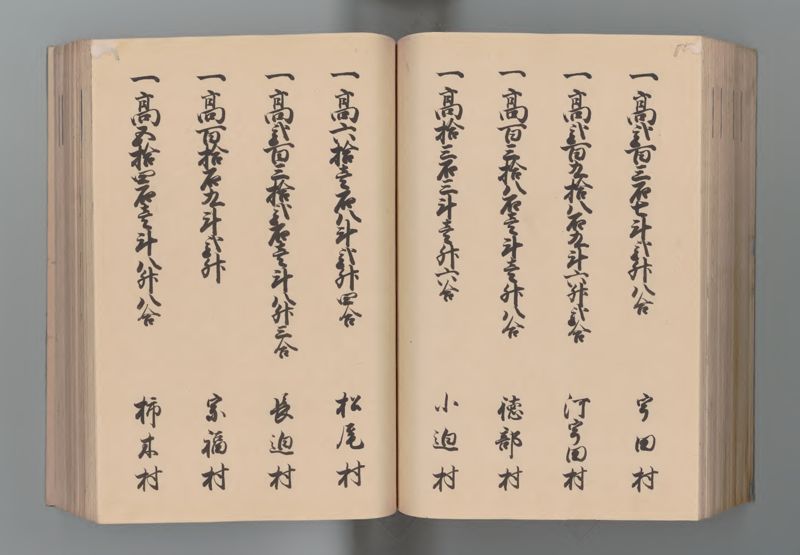 一高弐百三石七斗弐升八合 宇田村
一高弐百九拾八石五斗六升弐合 河宇田村
一高百三拾八石壱斗壱升八合 徳部村
一高拾三石三斗壱升六合 小迫村
一高六拾壱石八斗弐升四合 松尾村
一高弐百三拾弐石壱斗八升三合 長迫村
一高百拾石九斗弐升 宗福村
一高五拾四石壱斗八升八合 柿木村